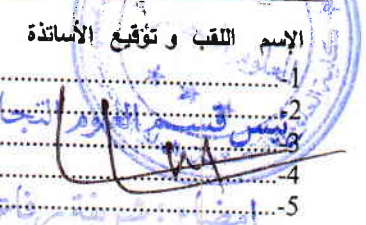 الإسم اللقب و توقيع الأساتذة
1-
2-
رئيس قسم العلوم التجا
3-
4-
5-
إمضاء :